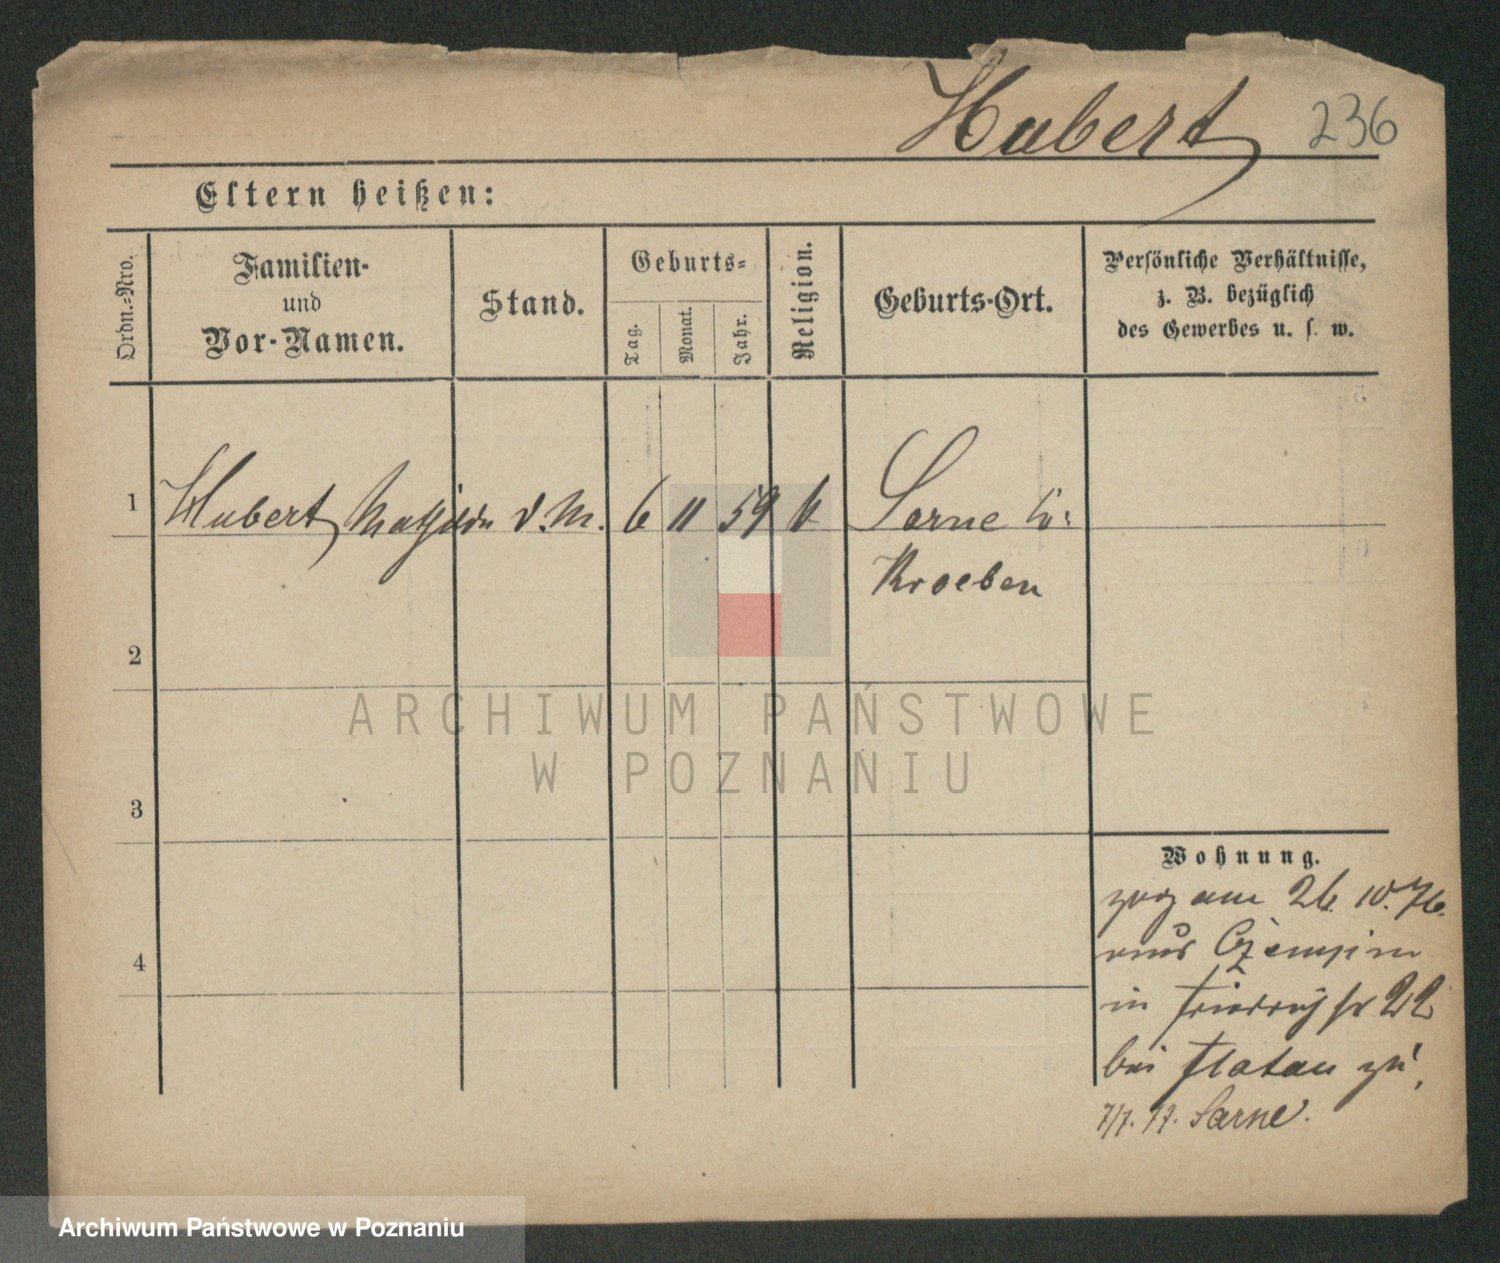 Hubert 236
Eltern heißen:
Ordn.=Nro.
Familien-
und
Vor-Namen.
Stand.
Geburts=
Tag.
Monat.
Jahr.
Religion.
Geburts-Ort.
Persönliche Verhältnisse,
z. B. bezüglich
des Gewerbes u. s. w.
1 Hubert Mathilde d. M. 6 11 59 k Sarne Kr:
Kroeben
2
3
4
Wohnung.
zog am 26. 10. 76.
aus Czempin
in Friedrichstr 22
bei Flatau zu,
7/7. 77. Sarne.
ARCHIWUM PAŃSTWOWE
W POZNANIU
Archiwum Państwowe w Poznaniu